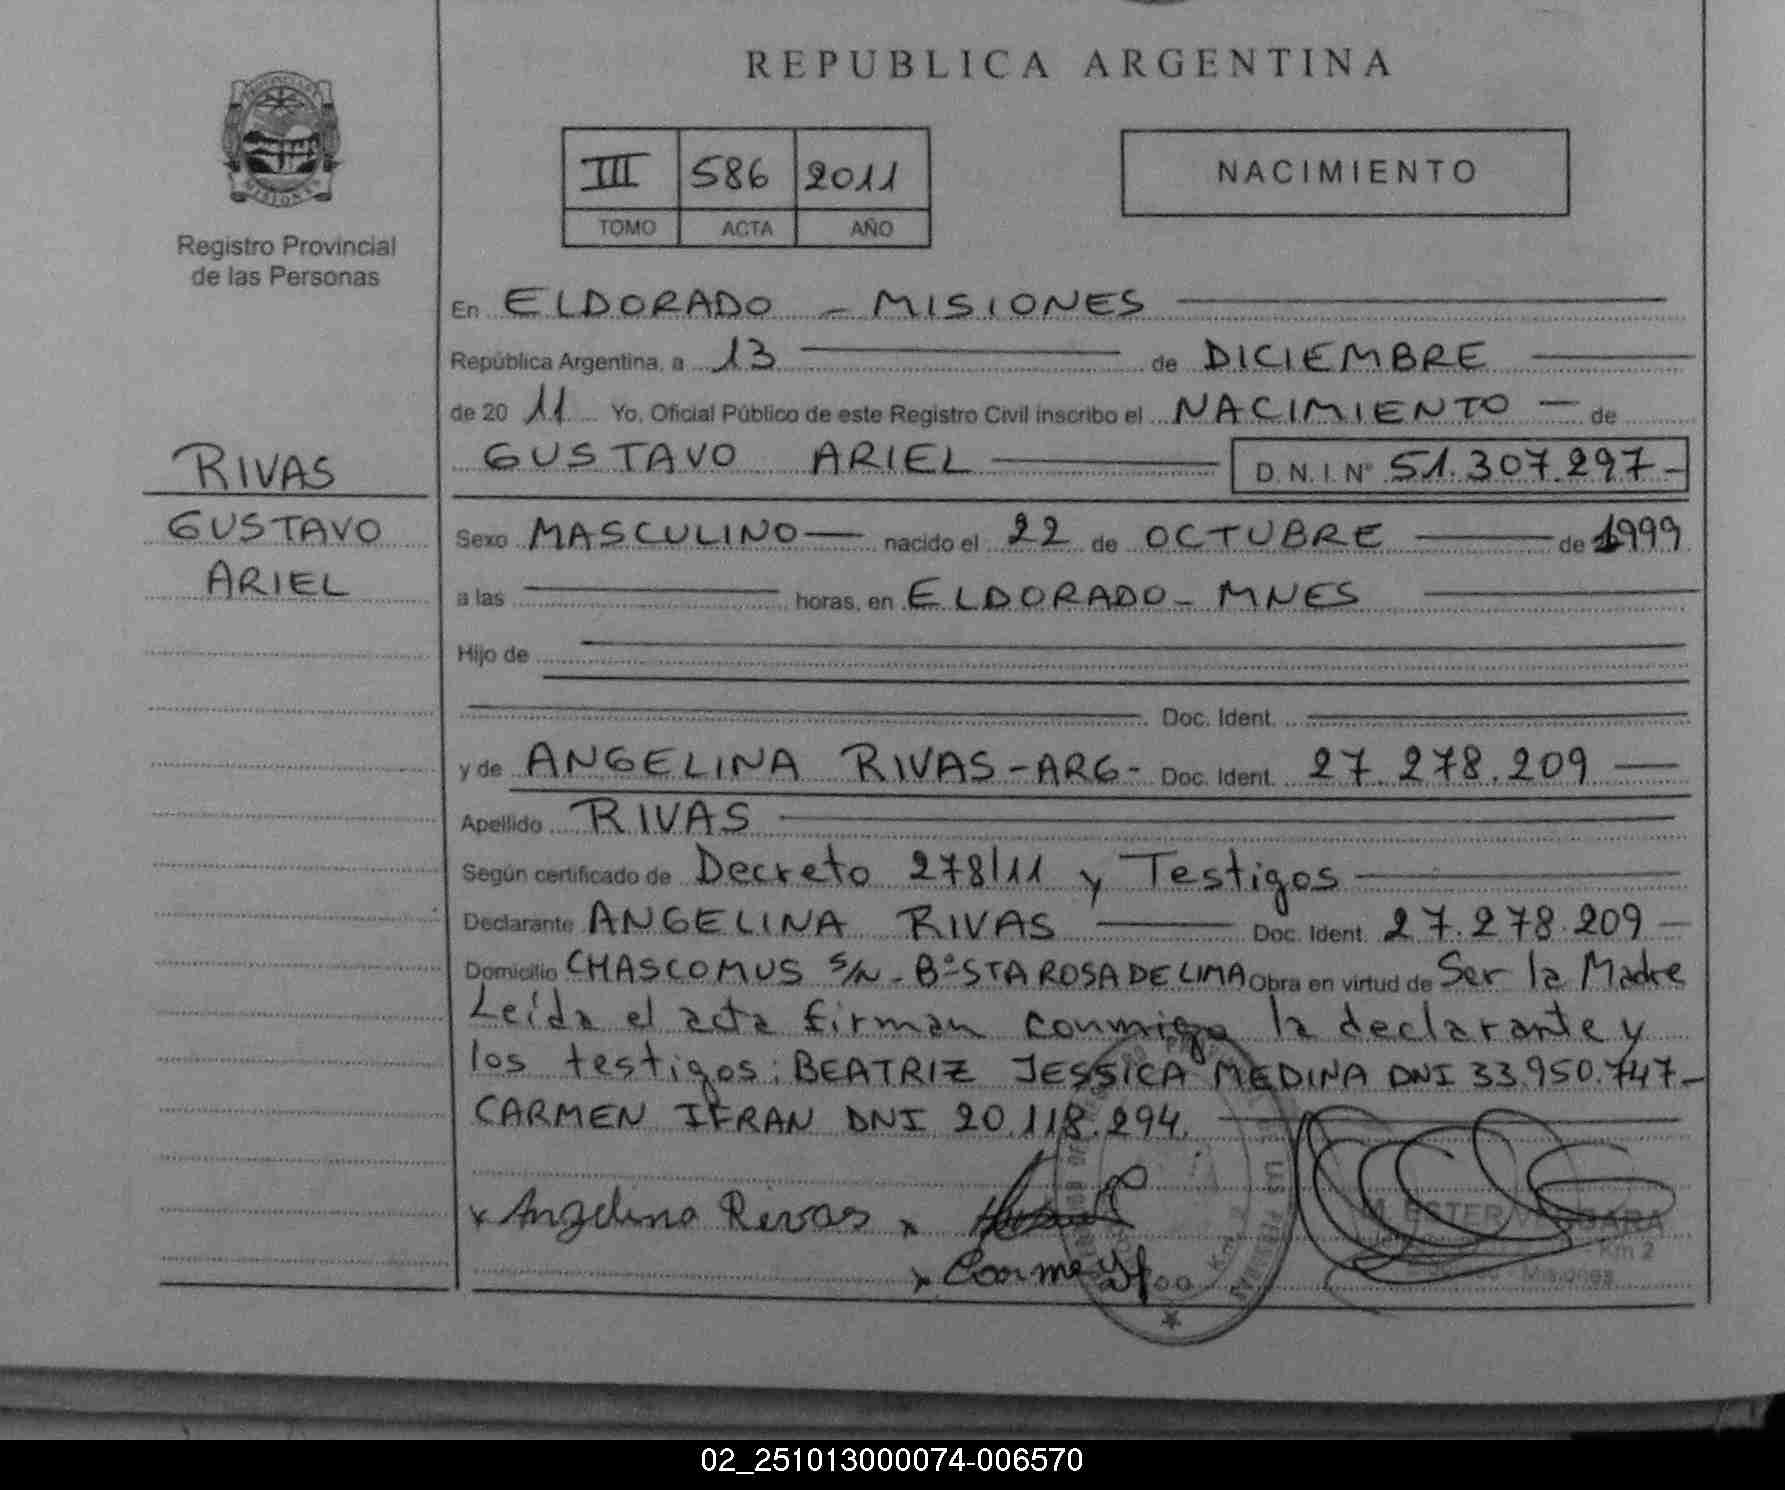 REPUBLICA ARGENTINA
PROVINCIA
MISIONES
Registro Provincial
de las Personas
III 586 2011
TOMO ACTA AÑO
NACIMIENTO
En ELDORADO - MISIONES
República Argentina, a 13 de DICIEMBRE
de 20 11 Yo, Oficial Público de este Registro Civil inscribo el NACIMIENTO - de
GUSTAVO ARIEL D.N.I. Nº 51.307.297-
RIVAS
GUSTAVO
ARIEL
Sexo MASCULINO nacido el 22 de OCTUBRE de 1999
a las horas, en ELDORADO - MNES
Hijo de
Doc. Ident.
y de ANGELINA RIVAS - ARG - Doc. Ident. 27.278.209
Apellido RIVAS
Según certificado de Decreto 278/11 y Testigos
Declarante ANGELINA RIVAS Doc. Ident. 27.278.209
Domicilio CHASCOMUS S/N - Bº STA ROSA DE LIMA Obra en virtud de Ser la Madre
Leída el acta firman conmigo la declarante y
los testigos: BEATRIZ JESSICA MEDINA DNI 33.950.747-
CARMEN IFRAN DNI 20.118.294.
x Angelina Rivas x
x Carmen
M. ESTER VERGARA
Km 2
Misiones
02_251013000074-006570